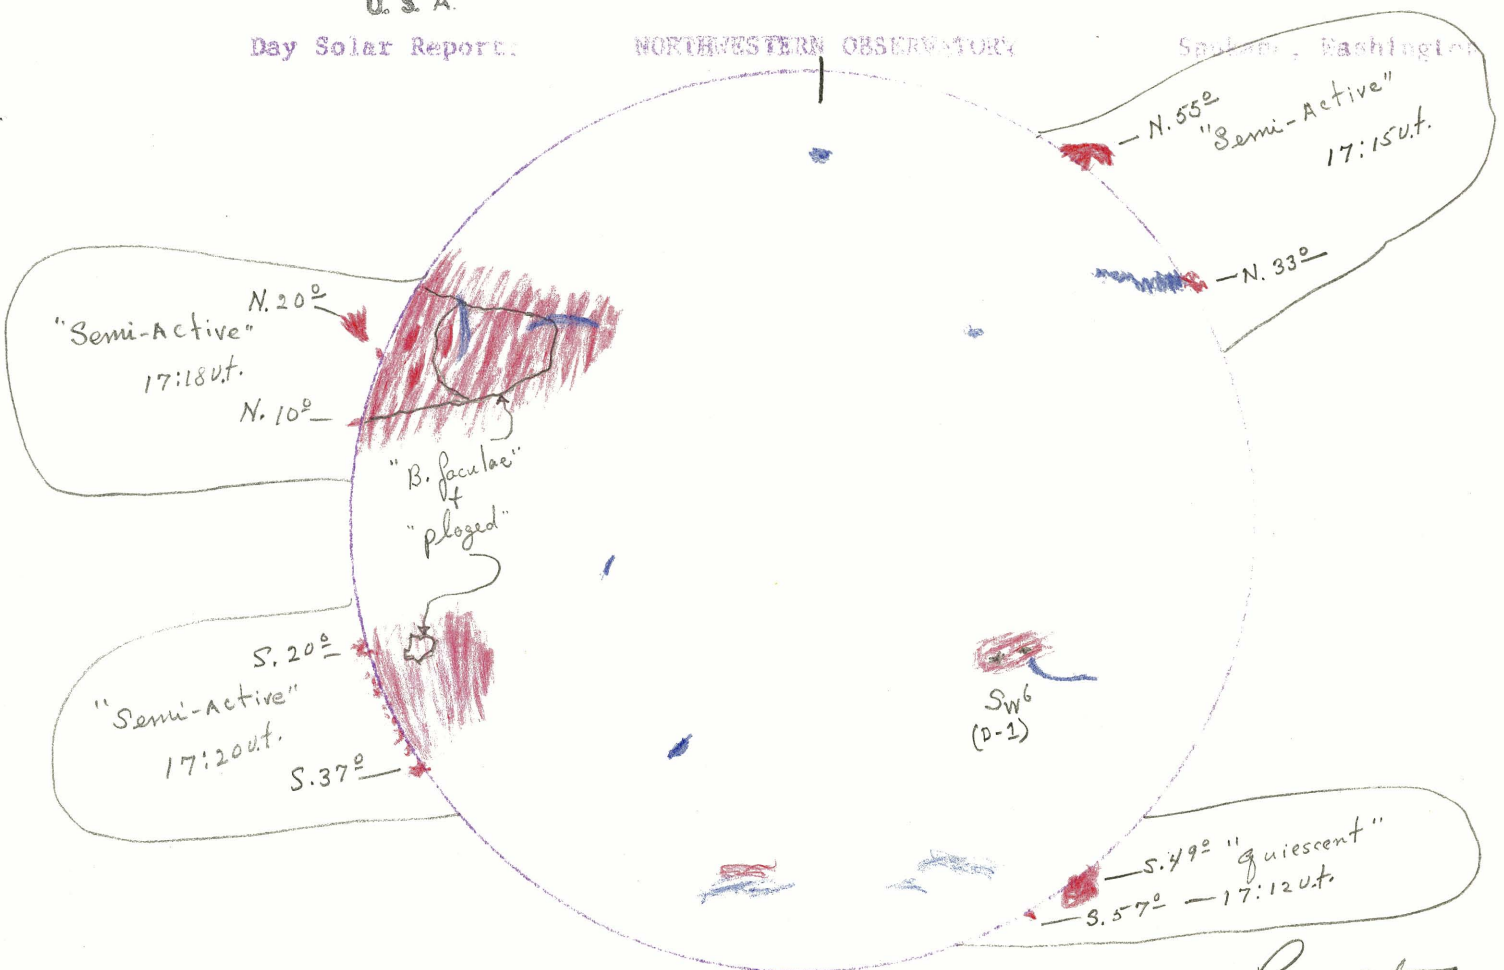 U. S. A.
Day Solar Report:
NORTHWESTERN OBSERVATORY
Spokane, Washington
N. 55º
"Semi-Active"
17:15 U.t.
N. 33º
N. 20º
"Semi-Active"
17:18 U.t.
N. 10º
"B. faculae"
+
"plaged"
S. 20º
"Semi-Active"
17:20 U.t.
S. 37º
SW6
(D-1)
S. 49º "quiescent"
S. 57º — 17:12 U.t.